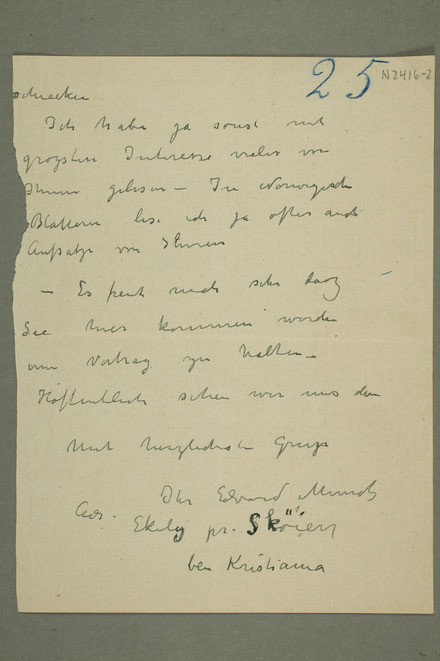 25 N2416-2
schrecken
Ich habe ja sonst mit
grozsten Interesse vieles von
Ihnen gelesen – In Norwegische
Blattern lese ich ja ofters auch
Aufsatze von Ihnen
– Es freut mich sehr dasz
See hier kommen worden
um Vortrag zu halten –
Hoffentlich sehen wir uns da
Mit herzlichsten Grusz
Ihr Edvard Munch
Adr. Ekely pr. Sköien
bei Kristiania